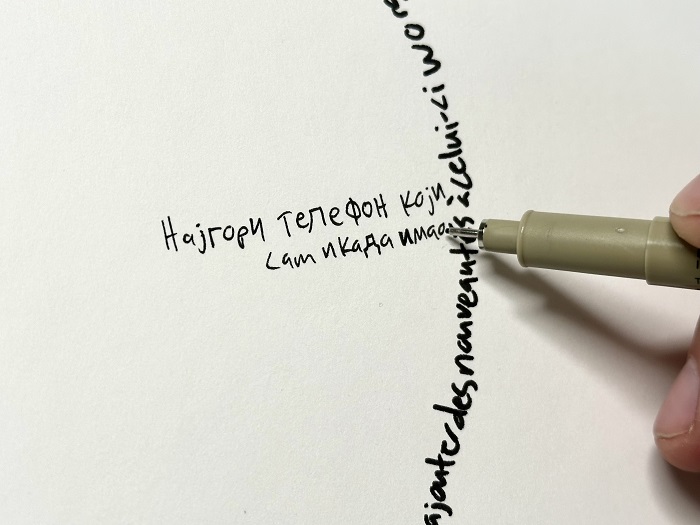 Најгори телефон који
сам икада имао
ajouter des nouveautés à celui-ci